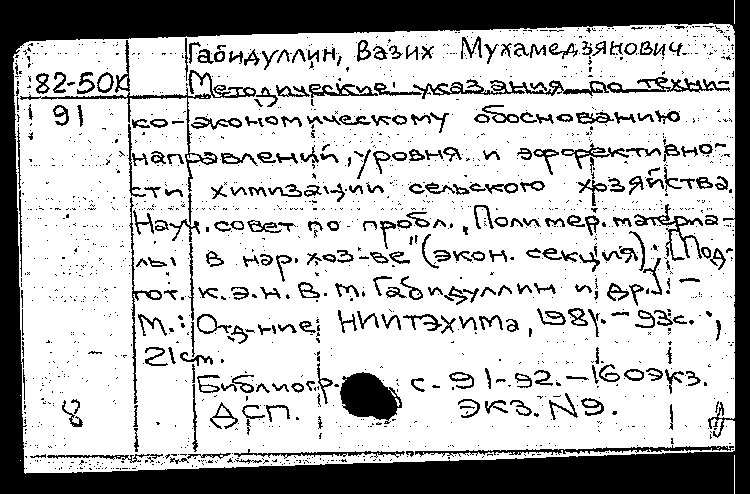 Габидуллин, Вазих Мухамедзянович
82-50К Методические указания по техни-
91 ко-экономическому обоснованию
направлений, уровня и эффективно-
сти химизации сельского хозяйства.
Науч. совет по пробл. „Полимер. материа-
лы в нар. хоз-ве" (экон. секция); [Под-
гот. к.э.н. В.М. Габидуллин и др.]. –
М.: Отд-ние НИИТЭхима, 1981. – 93с.;
21см.
Библиогр.: с. 91-92. – 160экз.
8 ДСП. ЭКЗ. N9.